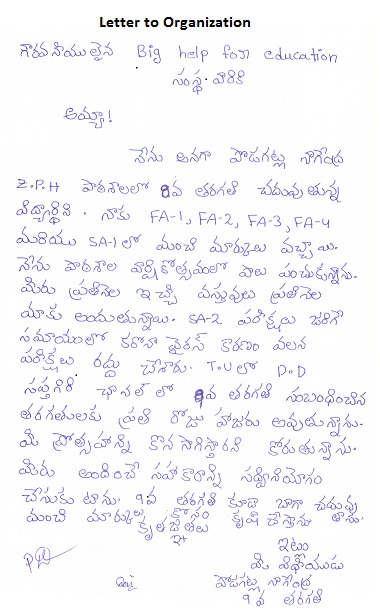 Letter to Organization
గౌరవనీయులైన Big help for education
సంస్థ వారికి
అమ్మా!
నేను అనగా పొడగట్ల నాగేంద్ర
Z.P.H పాఠశాలలో 8వ తరగతి చదువుతున్న
విద్యార్థిని. నాకు FA-1, FA-2, FA-3, FA-4
మరియు SA-1 లో మంచి మార్కులు వచ్చాయి.
నేను పాఠశాల వార్షికోత్సవంలో పాలు పంచుకున్నాను.
మీరు ప్రతినెల ఇచ్చే వస్తువులు ప్రతినెల
మాకు అందుతున్నాయి. SA-2 పరీక్షలు జరిగే
సమయంలో కరోనా వైరస్ కారణం వలన
పరీక్షలు రద్దు చేశారు. T.V లో D.D
సప్తగిరి ఛానల్ లో 9వ తరగతి సంబంధించిన
తరగతులకు ప్రతి రోజు హాజరు అవుతున్నాను.
మీ ప్రోత్సహాన్ని కొనసాగిస్తారని కోరుతున్నాను.
మీరు అందించే సహాకారాన్ని సద్వినియోగం
చేసుకుటాను. 9వ తరగతి కూడా బాగా చదువు
మంచి మార్కుల కోసం కృషి చేస్తాను
కృతజ్ఞతలు
ఇట్లు
మీ విధేయుడు
పొడగట్ల నాగేంద్ర
9వ తరగతి